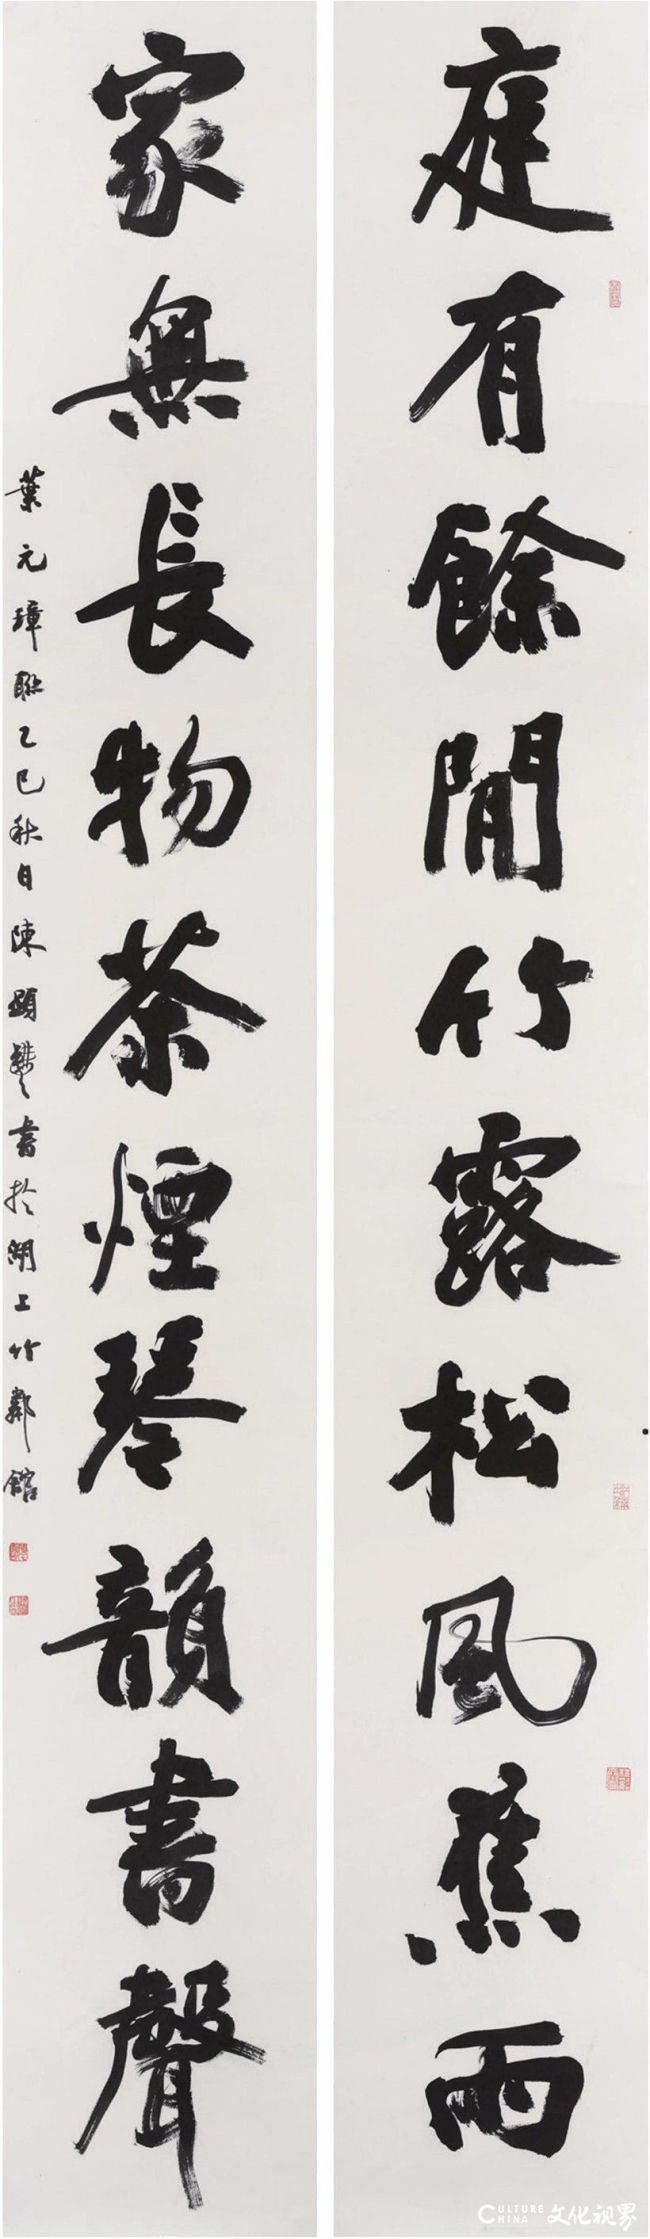 庭有餘閒竹露松風蕉雨
家無長物茶煙琴韻書聲
葉元璋聯乙巳秋日陳顯鏵書於湖上竹鄰館
CULTURE CHINA 文化视界